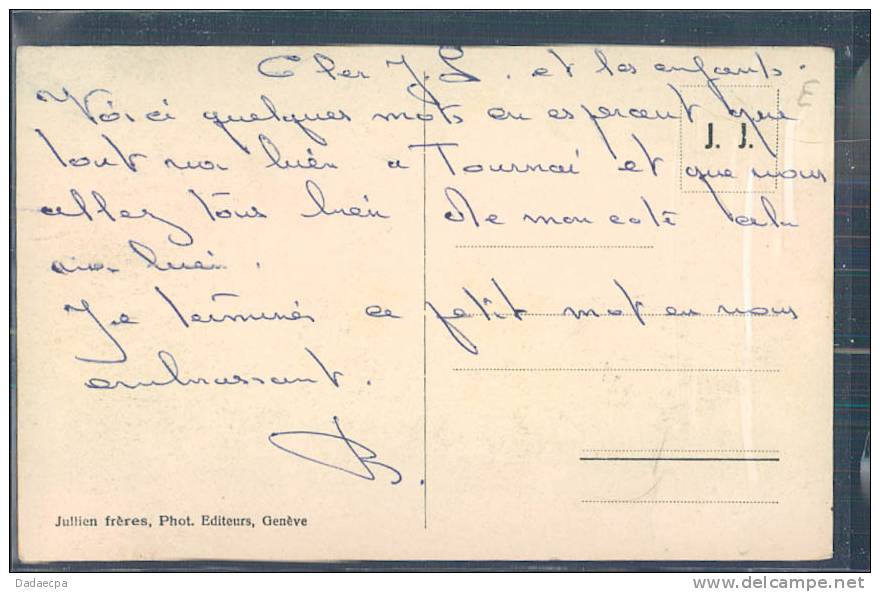 Cher J.L. et les enfants.
Voici quelques mots en espérant que
tout va bien a Tournai et que vous
allez tous bien de mon coté cela
va bien.
Je termine ce petit mot en vous
embrassant.
B.
J. J.
Jullien frères, Phot. Editeurs, Genève
Dadaecpa
www.delcampe.net